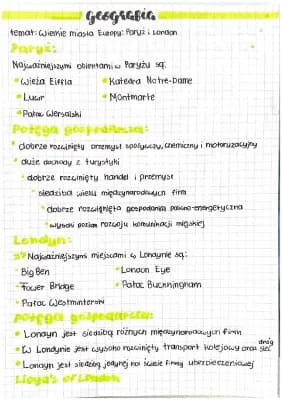 geografia
temat: Wielkie miasta Europy: Paryż i London
Paryż:
Najważniejszymi obiektami w Paryżu są:
• Wieża Eiffla • Katedra Notre-Dame
• Luwr • Montmarte
• Pałac Wersalski
Potęga gospodarcza:
• dobrze rozwinięty przemysł spożywczy, chemiczny i motoryzacyjny
• duże dochody z turystyki
• dobrze rozwinięty handel i przemysł
• siedziba wielu międzynarodowych firm
• dobrze rozwinięta gospodarka paliwo-energetyczna
• wysoki poziom rozwoju komunikacji miejskiej
Londyn:
Najważniejszymi miejscami w Londynie są:
• Big Ben • London Eye
• Tower Bridge • Pałac Buckningham
• Pałac Westminterski
potęga gospodarcza:
• Londyn jest siedzibą różnych międzynarodowych firm
• W Londynie jest wysoko rozwinięty transport kolejowy oraz sieć dróg
• Londyn jest siedzibą jedynej na świecie firmy ubezpieczeniowej
Lloyd's of London